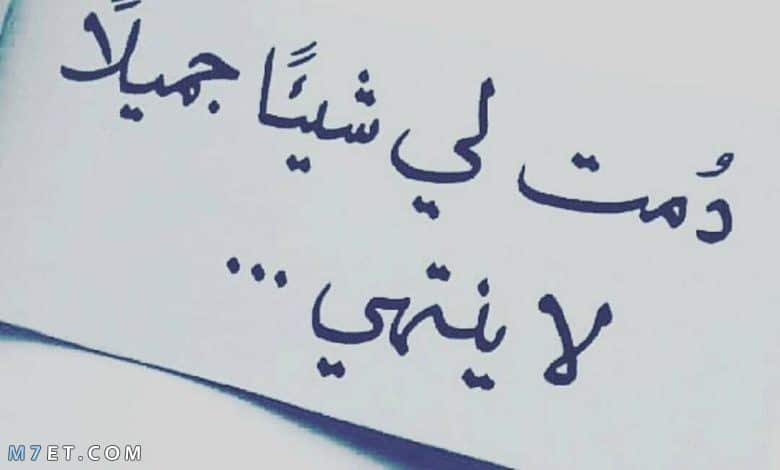 دُمت لي شيئًا جميلًا
لا ينتهي ...
M7ET.COM